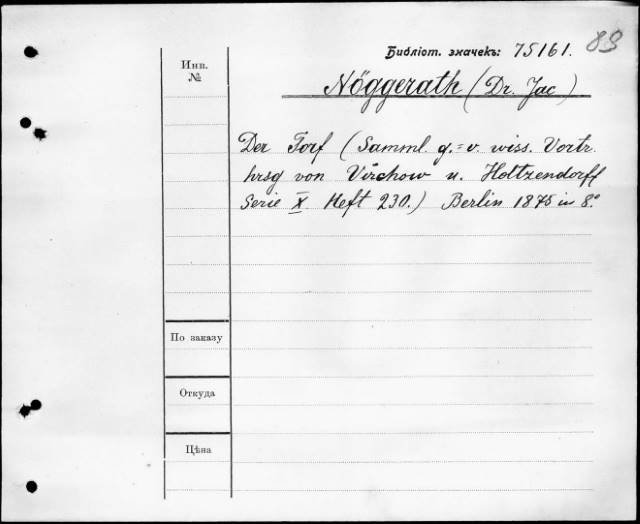 Библіот. значекъ: 75161.
Инв. №
Nöggerath (Dr. Jac)
Der Torf (Samml. g.=v. wiss. Vortr.
hrsg von Virchow u. Holtzendorff
Serie X Heft 230.) Berlin 1875 in 8.°
По заказу
Откуда
Цѣна